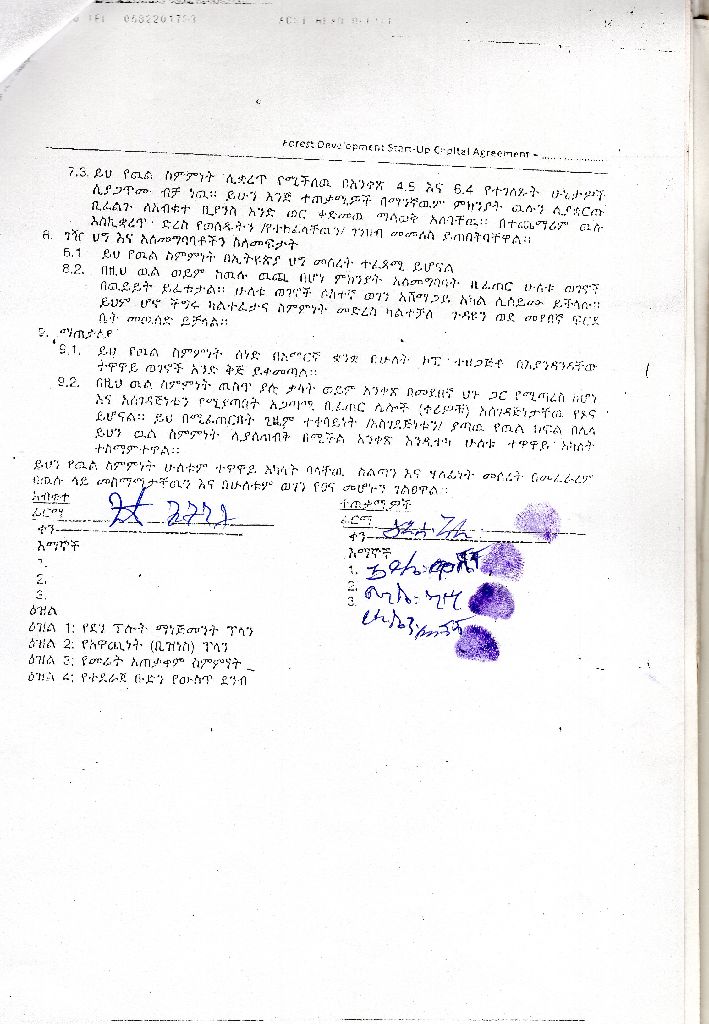 TEL 0582201793
Forest Development Start-Up Capital Agreement -
7.3. ይህ የዉል ስምምነት ሊቋረጥ የሚችለዉ በአንቀጽ 4.5 እና 6.4 የተገለጹት ሁኔታዎች
ሲያጋጥሙ ብቻ ነዉ። ይሁን እንጅ ተጠቃሚዎች በማንኛዉም ምክንያት ዉሉን ሊያቋርጡ
ቢፈልጉ ለአብቁተ ቢያንስ አንድ ወር ቀድመዉ ማሳወቅ አለባቸዉ። በተጨማሪም ዉሉ
እስኪቋረጥ ድረስ የወሰዱትን /የተከፈላቸዉን/ ገንዘብ መመለስ ይጠበቅባቸዋል።
8. ገዥ ህግ እና አለመግባባቶችን ስለመፍታት
8.1 ይህ የዉል ስምምነት በኢትዮጵያ ህግ መሰረት ተፈጻሚ ይሆናል
8.2. በዚህ ዉል ወይም ከዉሉ ዉጪ በሆነ ምክንያት አለመግባባት ቢፈጠር ሁለቱ ወገኖች
በዉይይት ይፈቱታል። ሁለቱ ወገኖች ሶስተኛ ወገን አሸማጋይ አካል ሊሰይሙ ይችላሉ።
ይህም ሆኖ ችግሩ ካልተፈታና ስምምነት መድረስ ካልተቻለ ጉዳዩን ወደ መደበኛ ፍርድ
ቤት መዉሰድ ይቻላል።
9. ማጠቃለያ
9.1. ይህ የዉል ስምምነት ሰነድ በአማርኛ ቋንቋ በሁለት ኮፒ ተዘጋጅቶ በእያንዳንዳቸው
ተዋዋይ ወገኖች አንድ ቅጅ ይቀመጣል።
9.2. በዚህ ዉል ስምምነት ዉስጥ ያሉ ቃላት ወይም አንቀጽ ከመደበኛ ህጉ ጋር የሚጣረስ ከሆነ
እና አስገዳጅነቱን የሚያጣበት አጋጣሚ ቢፈጠር ሌሎች (ቀሪዎቹ) አስገዳጅነታቸዉ የጸና
ይሆናል። ይህ በሚፈጠርበት ጊዜም ተቀባይነት /አስገዳጅነቱን/ ያጣዉ የዉል ክፍል በሌላ
ይህን ዉል ስምምነት ሊያስጠብቅ በሚችል አንቀጽ እንዲተካ ሁለቱ ተዋዋይ አካላት
ተስማምተዋል።
ይህን የዉል ስምምነት ሁለቱም ተዋዋይ አካላት ባላቸዉ ስልጣን እና ሃላፊነት መሰረት በመፈራረም
በዉሉ ላይ መስማማታቸዉን እና በሁለቱም ወገን የጸና መሆኑን ገልፀዋል።
አብቁተ
ተጠቃሚዎች
ፊርማ
ፊርማ
ቀን
ቀን
እማኞች
እማኞች
1.
1.
2.
2.
3.
3.
ዕዝል
ዕዝል 1: የደን ፕሎት ማኔጅመንት ፕላን
ዕዝል 2: የአዋጪነት (ቢዝነስ) ፕላን
ዕዝል 3: የመሬት አጠቃቀም ስምምነት
ዕዝል 4: የተደራጀ ቡድን የዉስጥ ደንብ